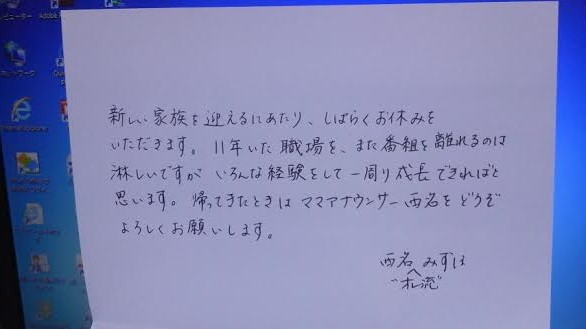 新しい家族を迎えるにあたり、しばらくお休みを
いただきます。11年いた職場を、また番組を離れるのは
淋しいですが いろんな経験をして一周り成長できればと
思います。帰ってきたときは ママアナウンサー西名をどうぞ
よろしくお願いします。
西名 みずほ
"オレ流"